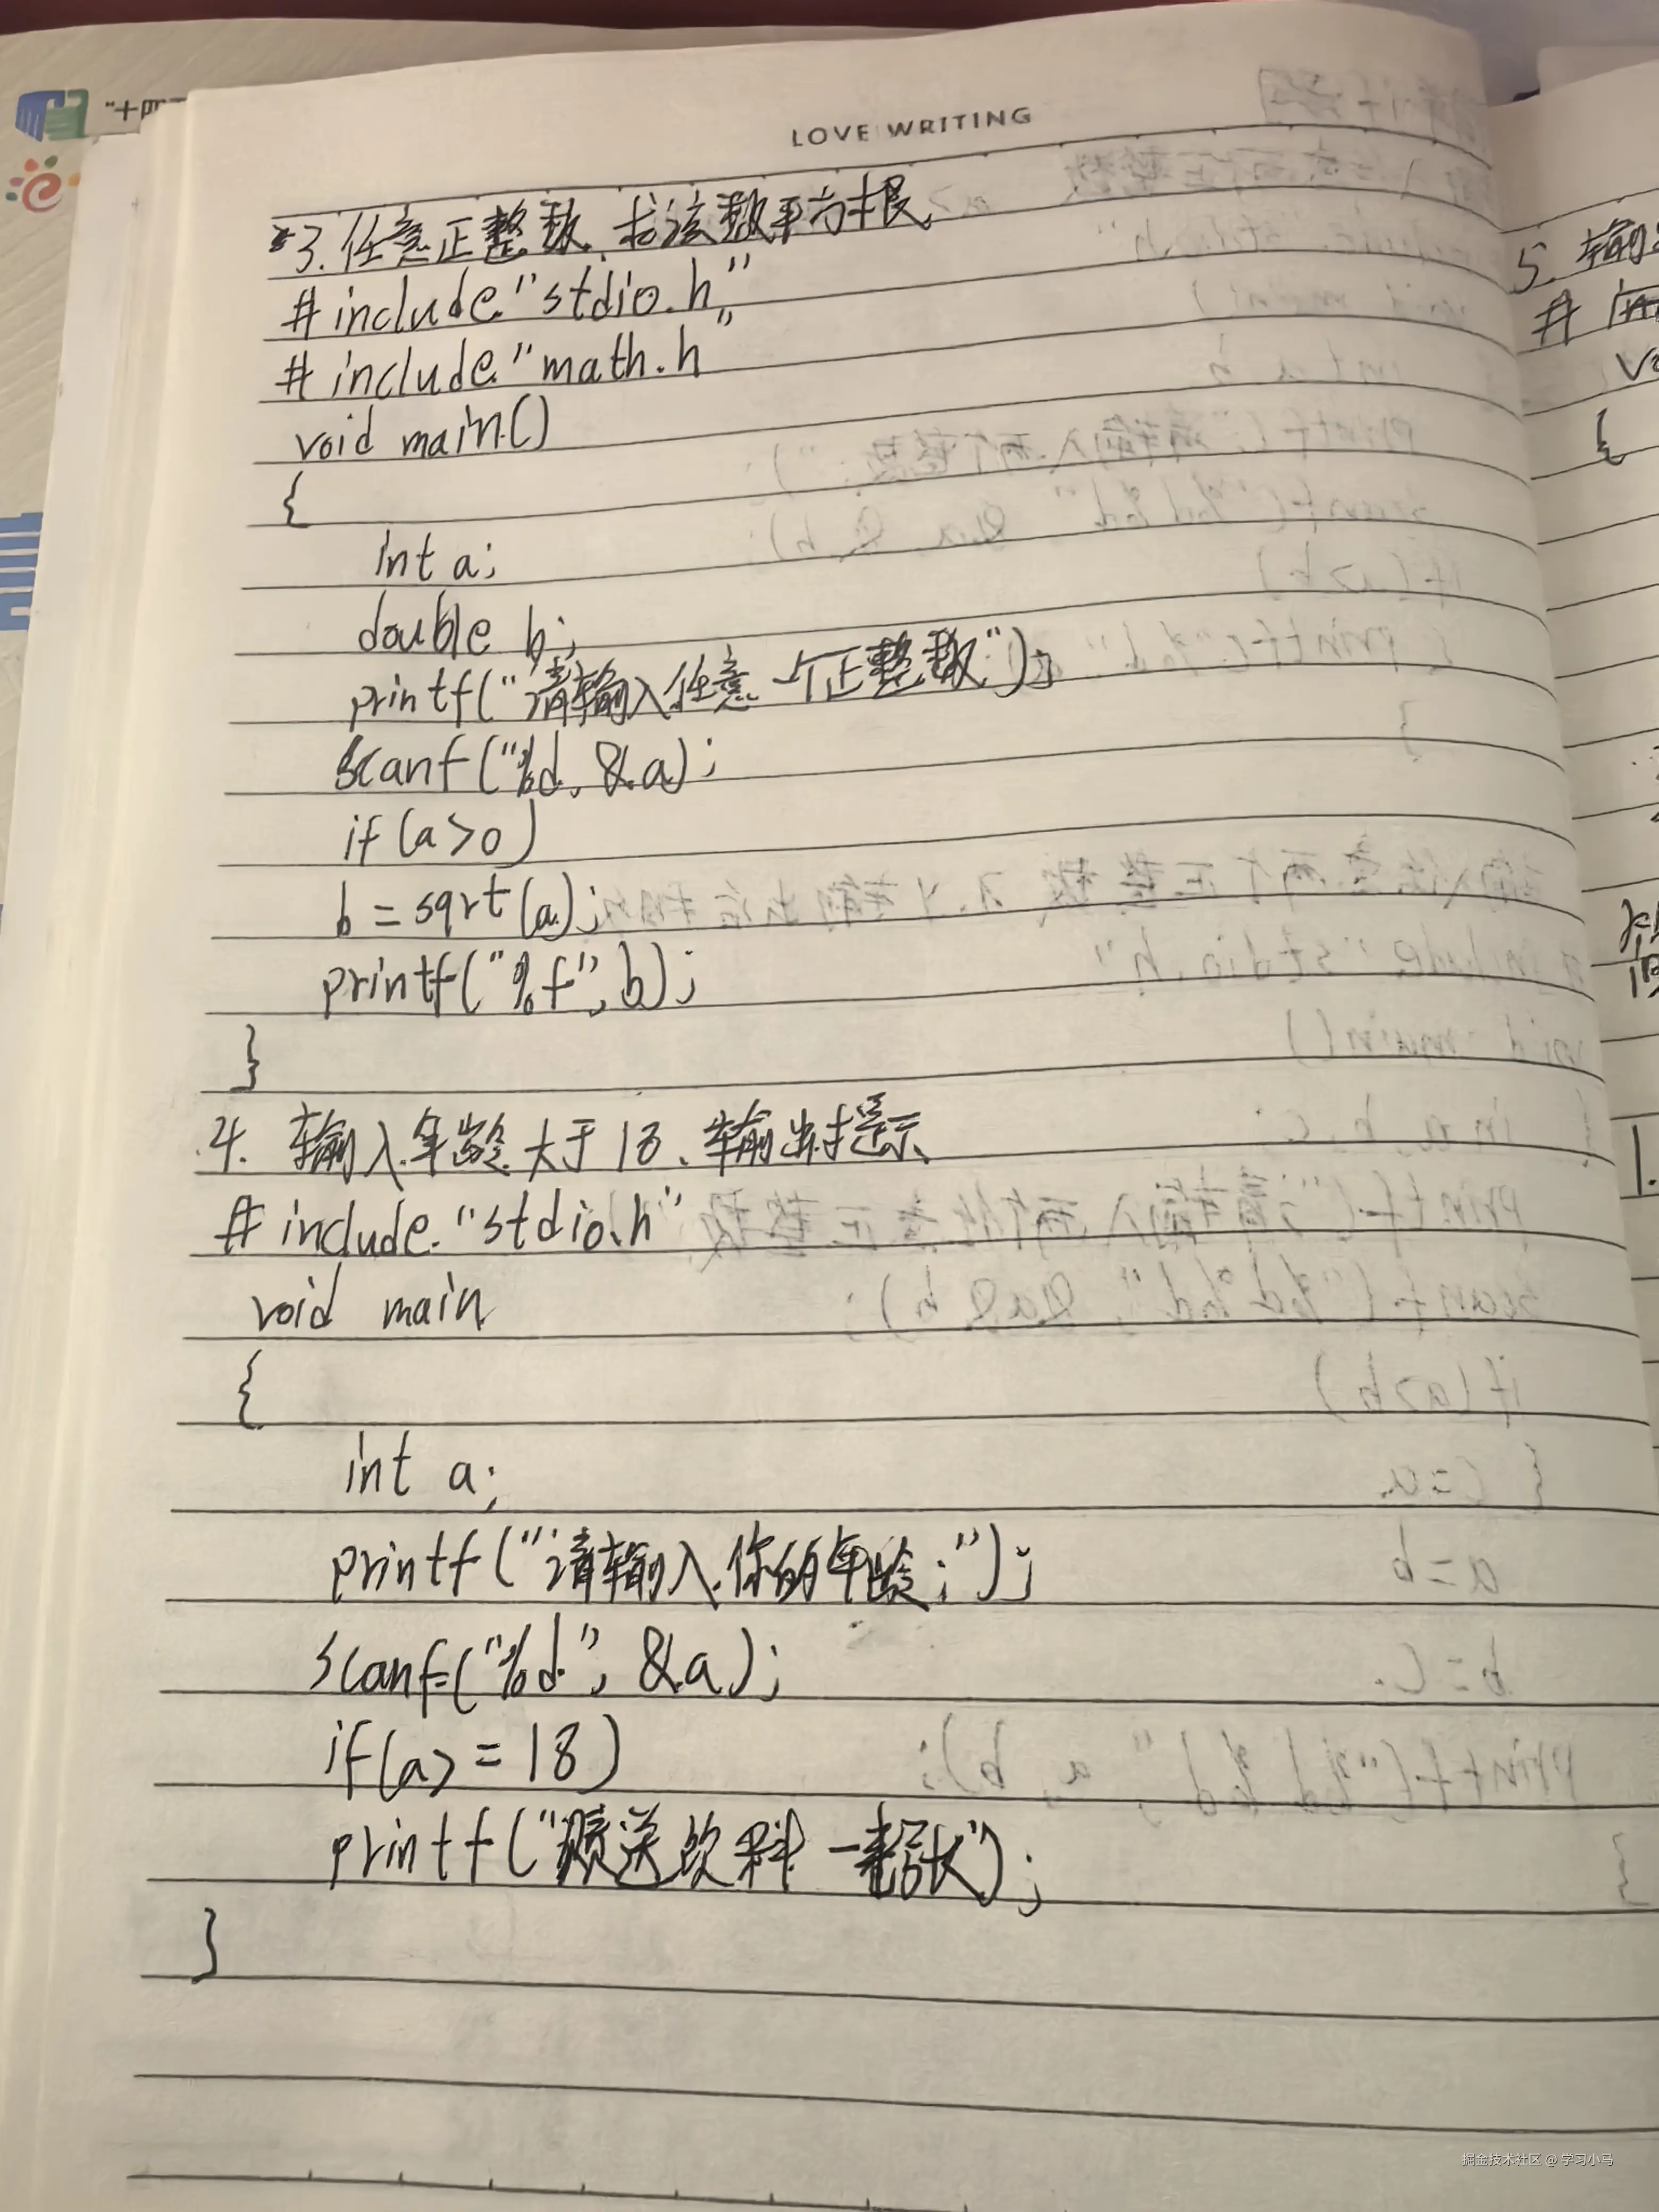 LOVE WRITING
3.任意正整数,求该数平方根
#include"stdio.h"
#include"math.h"
void main()
{
int a;
double b;
printf("请输入任意一个正整数");
scanf("%d,&a);
if(a>0)
b=sqrt(a);
printf("%f",b);
}
4.输入年龄大于18、输出提示
#include"stdio.h"
void main
{
int a;
printf("请输入你的年龄:");
scanf("%d",&a);
if(a>=18)
printf("赠送饮料一张");
}
5.输
#
vo
{
1.
"十四
掘金技术社区 @ 学习小马